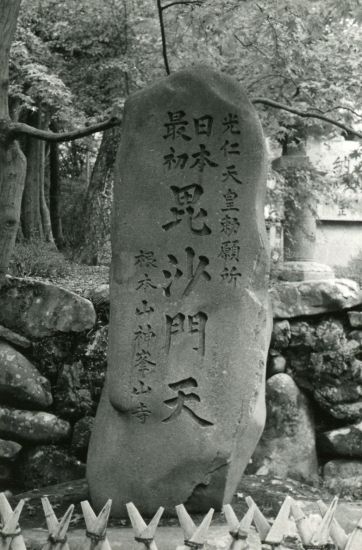 光仁天皇勅願所
日本
最初
毘沙門天
根本山神峯山寺